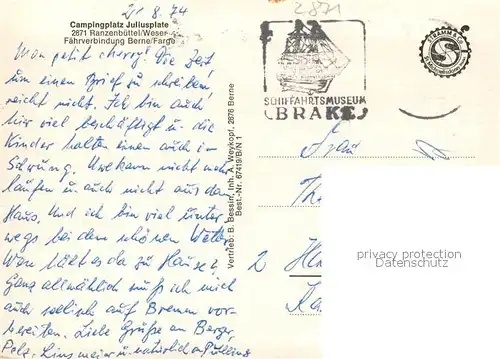 21.8.74
Campingplatz Juliusplate
2871 Ranzenbüttel/Weser
Fährverbindung Berne/Farge
Mon petit cherry! Die Zeit
um einen Brief zu schreiben,
reicht nicht. Ich bin auch
hier viel beschäftigt u. die
Kinder halten einen auch in
Schwung. Uwe kann nicht mehr
laufen u. auch nicht aus dem
Haus. Und ich bin viel unter
wegs bei dem schönen Wetter.
Wer hält es da zu Hause
Ganz allmählich muß ich mich
auch seelisch auf Bremen vor-
bereiten. Liebe Grüße an Berger,
u. natürlich an
Vertrieb: B. Bessin, Inh. A. Weykopf, 2876 Berne
Best.-Nr. 67419/B/N 1
2871
SCHIFFAHRTSMUSEUM
BRAKE
KRAMMAG
Frau
Th
2
H
Ka
privacy protection
Datenschutz